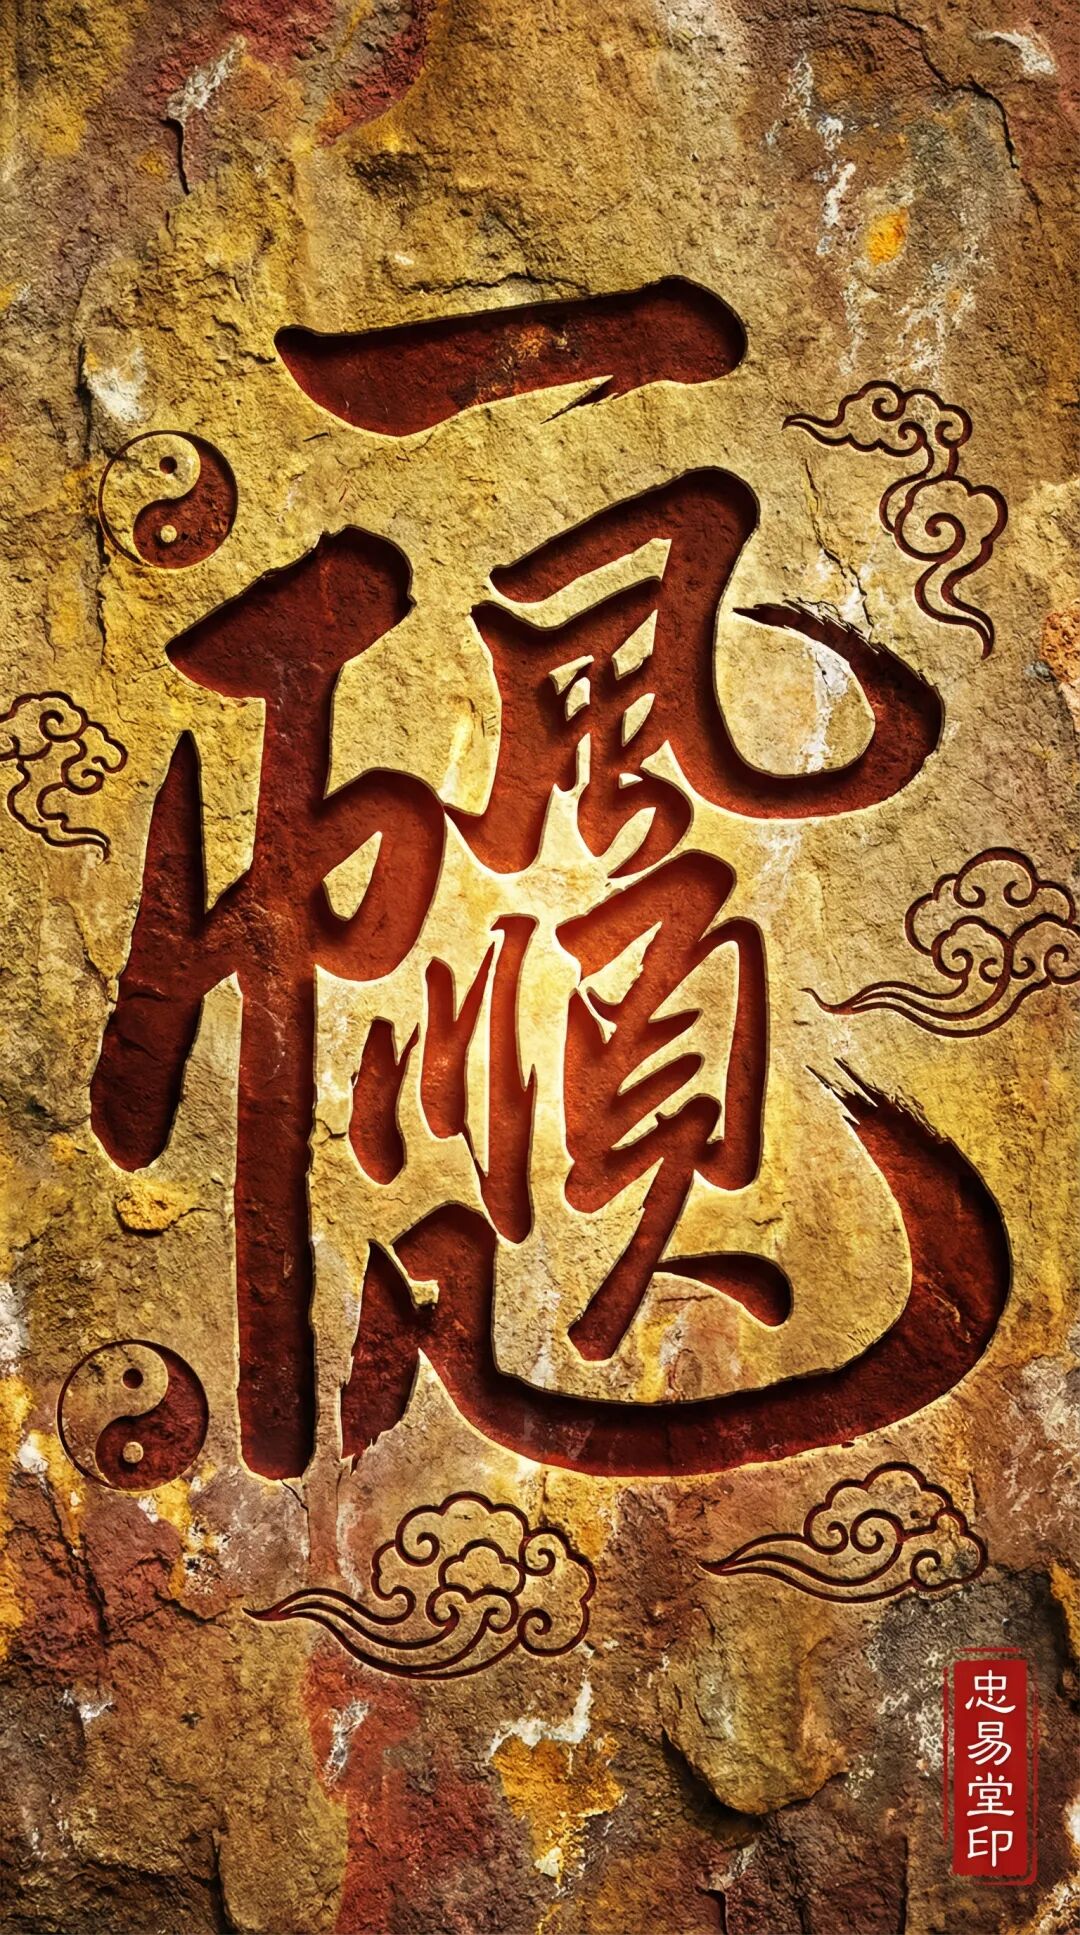 一帆風順
忠易堂印